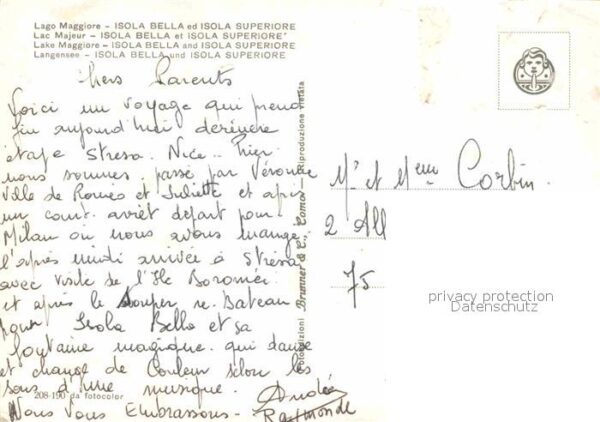 Lago Maggiore - ISOLA BELLA ed ISOLA SUPERIORE
Lac Majeur - ISOLA BELLA et ISOLA SUPERIORE
Lake Maggiore - ISOLA BELLA and ISOLA SUPERIORE
Langensee - ISOLA BELLA und ISOLA SUPERIORE
Chers Parents
Voici un voyage qui prend
fin aujourd'hui dernière
etape Stresa. Nice.. Hier
nous sommes passé par Vérone
Ville de Roméo et Juliette et après
un court arrêt départ pour
Milan ou nous avons mangé
l'après midi arrivée à Strésa
avec visite de l'Ile Boromée.
et après le souper re. Bateau
pour Isola Bella et sa
fontaine magique qui danse
et change de Couleur selon les
sons d'une musique.
Nous Vous Embrassons -
Andrée
Raymonde
208-190 da fotocolor
Fotoedizioni Brunner & C., Como - Riproduzione vietata
Mr et Mme Corbin.
2 All
75
privacy protection
Datenschutz